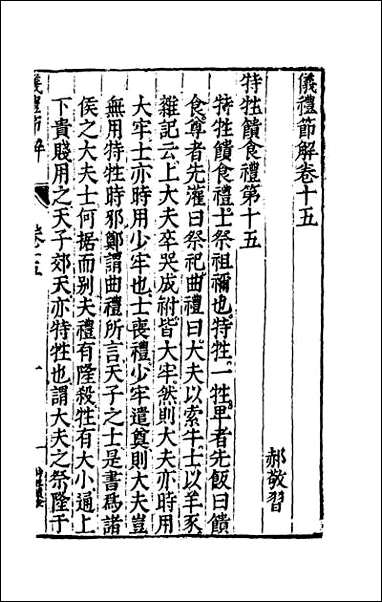 儀禮節解卷十五
郝敬習
特牲饋食禮第十五
特牲饋食禮士祭祖禰也特牲一牲卑者先飯曰饋
食尊者先灌曰祭祀曲禮曰大夫以索牛士以羊豕
雜記云上大夫卒哭成祔皆大牢然則大夫亦時用
大牢士亦時用少牢也士喪禮少牢遣奠則大夫豈
無用特牲時邪鄭謂曲禮所言天子之士是書爲諸
侯之大夫士何据而别夫禮有隆殺牲有大小通上
下貴賤用之天子郊天亦特牲也謂大夫之祭隆于
儀禮節解 卷十五 一